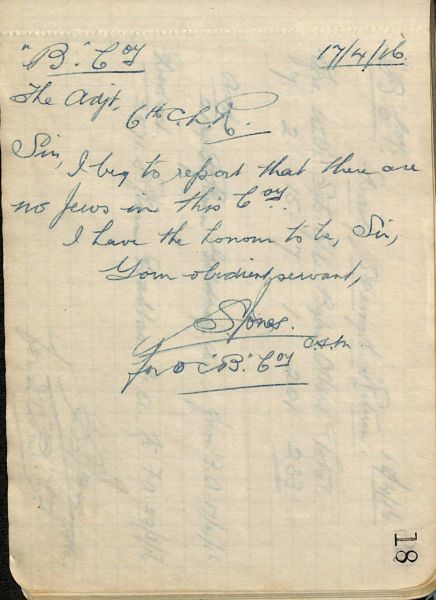 "B." Coy 17/4/16.
The Adjt,
6th C.L.R.
Sir,
I beg to report that there are
no Jews in this Coy.
I have the honour to be, Sir,
Your obedient servant,
S. Jones.
C.S.M.
for O C "B." Coy
18